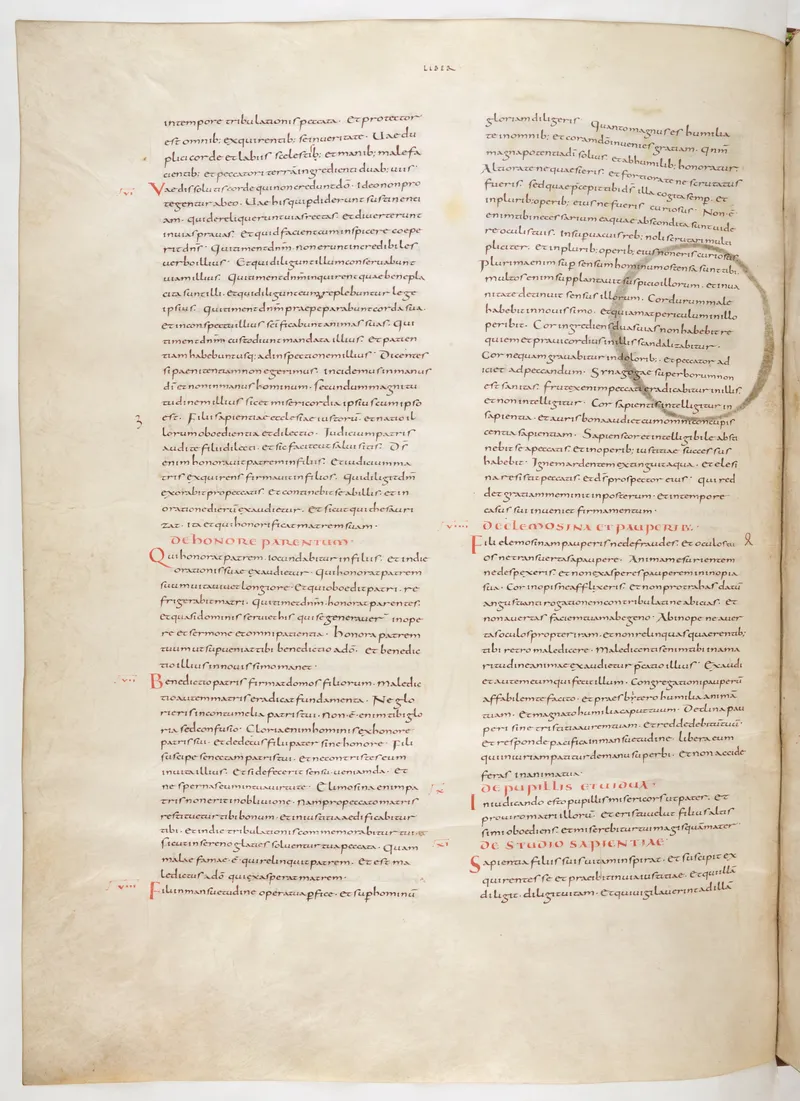 LIBER
intempore tribulationis peccata· Et protector
est omnib; exquirentib; se inueritate· Uae du
plici corde et labiis scelestib; et manib; malefa
cientib; et peccatori terrā ingredienti duab; uiis·
Vae dissolutis corde qui non credunt dō· Ideo non pro
tegentur abeo· Uae his qui pdiderunt sustinenti
am· qui dereliquerunt uias rectas· et diuerterunt
inuias prauas· et quid facient cum inspicere coepe
rit dn̄s· Qui timent dn̄m· non erunt incredibiles
uerbo illius· Et qui diligunt illum conseruabunt
uiam illius· Qui timent dn̄m inquirent quae benepla
cita sunt illi· et qui diligunt eum replebuntur lege
ipsius· Qui timent dn̄m praeparabunt corda sua·
et in conspectu illius sc̄ificabunt animas suas· Qui
timent dn̄m custodiunt mandata illius· et patien
tiam habebunt usq; ad inspectionem illius· Dicentes
si paenitentiam non egerimus· incidemus in manus
dī et non in manus hominum· secundum magnitu
tudinem illius sic et misericordia ipsius cum ipso
est· Filii sapientiae ecclesiae iustorū· et natio il
lorum oboedientia et dilectio· Iudicium patris
audite filii dilecti· et sic facite ut salui sitis· Ds̄
enim honorauit patrem in filiis· et iudicium ma
tris exquirens firmauit in filios· Qui diligit dm̄
exorabit pro peccatis· et continebit se ab illis· et in
oratione dierū exaudietur· et sicut qui thesauri
zat· ita et qui honorificat matrem suam·
DE HONORE PARENTUM·
Qui honorat patrem· iocundabitur in filiis· et in die
orationis suae exaudietur· Qui honorat patrem
suum uita uiuet longiore· et qui oboedit patri· re
frigerabit matri· Qui timet dn̄m· honorat parentes·
et quasi dominis seruiet his qui se generauer̄· in ope
re et sermone et omni patientia· Honora patrem
tuum ut supueniat tibi benedictio a dō· et benedic
tio illius in nouissimo manet·
Benedictio patris firmat domos filiorum· maledic
tio autem matris eradicat fundamenta· Ne glo
rieris in contumelia patris tui· non ē enim tibi glo
ria sed confusio· Gloria enim hominis ex honore
patris sui· et dedecus filii pater sine honore· Fili
suscipe senectam patris tui· et ne contristes eum
in uita illius· et si defecerit sensu ueniam da· et
ne spernas eum in tua uirtute· Elimosina enim pa
tris non erit in obliuione· nam pro peccato matris
restituetur tibi bonum· et in iustitia aedificabitur
tibi· et in die tribulationis commemorabitur tui· et
sicut in sereno glacies soluentur tua peccata· Quam
malae famae ē qui relinquit patrem· et est ma
ledictus a dō qui exasperat matrem·
Fili in mansuetudine opera tua pfice· et sup hominū
gloriam diligeris· Quanto magnus es humilia
te in omnib; et coram dō inuenies gratiam· Qnm̄
magna potentia dī solius et ab humilib; honoratur·
Altiora te ne quaesieris· et fortiora te ne scrutatus
fueris· sed quae pcepit tibi ds̄ illa cogita semp· et
in plurib; operib; eius ne fueris curiosus· Non ē
enim tibi necessarium ea quae abscondita sunt uide
re oculis tuis· In supuacuis reb; noli scrutari mul
pliciter· et in plurib; operib; eius non eris curiosus·
Plurima enim sup sensum hominum ostensa sunt tibi·
multos enim supplantauit suspicio illorum· et in ua
nitate detinuit sensus illorum· Cor durum male
habebit in nouissimo· et qui amat periculum in illo
peribit· Cor ingrediens duas uias non habebit re
quiem et praui cordis in illis scandalizabitur·
Cor nequam grauabitur in dolorib; et peccator ad
iciet ad peccandum· Synagogae superborum non
est sanitas· frutex enim peccati eradicabitur in illis·
et non intelligitur· Cor sapientis intelligitur in
sapientia· et auris bona audiet cum omni concupis
centia sapientiam· Sapiens cor et intelligibile absti
nebit se a peccatis· et in operib; iustitiae successus
habebit· Ignem ardentem extinguit aqua· et elesi
na resistit peccatis· et ds̄ prospector eius qui red
det gratiam meminit in posterum· et in tempore
casus sui inueniet firmamentum·
DE ELEMOSINA ET PAUPERIB·
Fili elemosinam pauperis ne defraudes· et oculos tu
os ne transuertas a paupere· Animam esurientem
ne despexeris· et non exasperes pauperem in inopia
sua· Cor inopis ne afflixeris· et non protrahas datū
angustianti· rogationem contribulati ne abicias· et
non auertas faciem tuam ab egeno· Ab inope ne auer
tas oculos propter iram· et non relinquas quaerentib;
tibi retro maledicere· maledicentis enim tibi in ama
ritudine animae exaudietur pcatio illius· Exaudi
et autem eum qui fecit illum· Congregationi pauperū
affabilem te facito· et praesbytero humilia animā
tuam· et magnato humilia caput tuum· Declina pau
peri sine tristitia aurem tuam· et redde debitū tuū·
et responde pacifica in mansuetudine· libera eum
qui iniuriam patitur de manu superbi· et non accide
feras in anima tua·
DE PUPILLIS ET UIDUA·
In iudicando esto pupillis misericors ut pater· et
pro uiro matri illorū· et eris tu uelut filius altis
simi oboediens· et miserebitur tui magis quā mater·
DE STUDIO SAPIENTIAE·
Sapientia filiis suis uitam inspirat· et suscipit ex
quirentes se et praeibit in uia iustitiae· et qui illā
diligit· diligit uitam· et qui uigilauerint ad illā